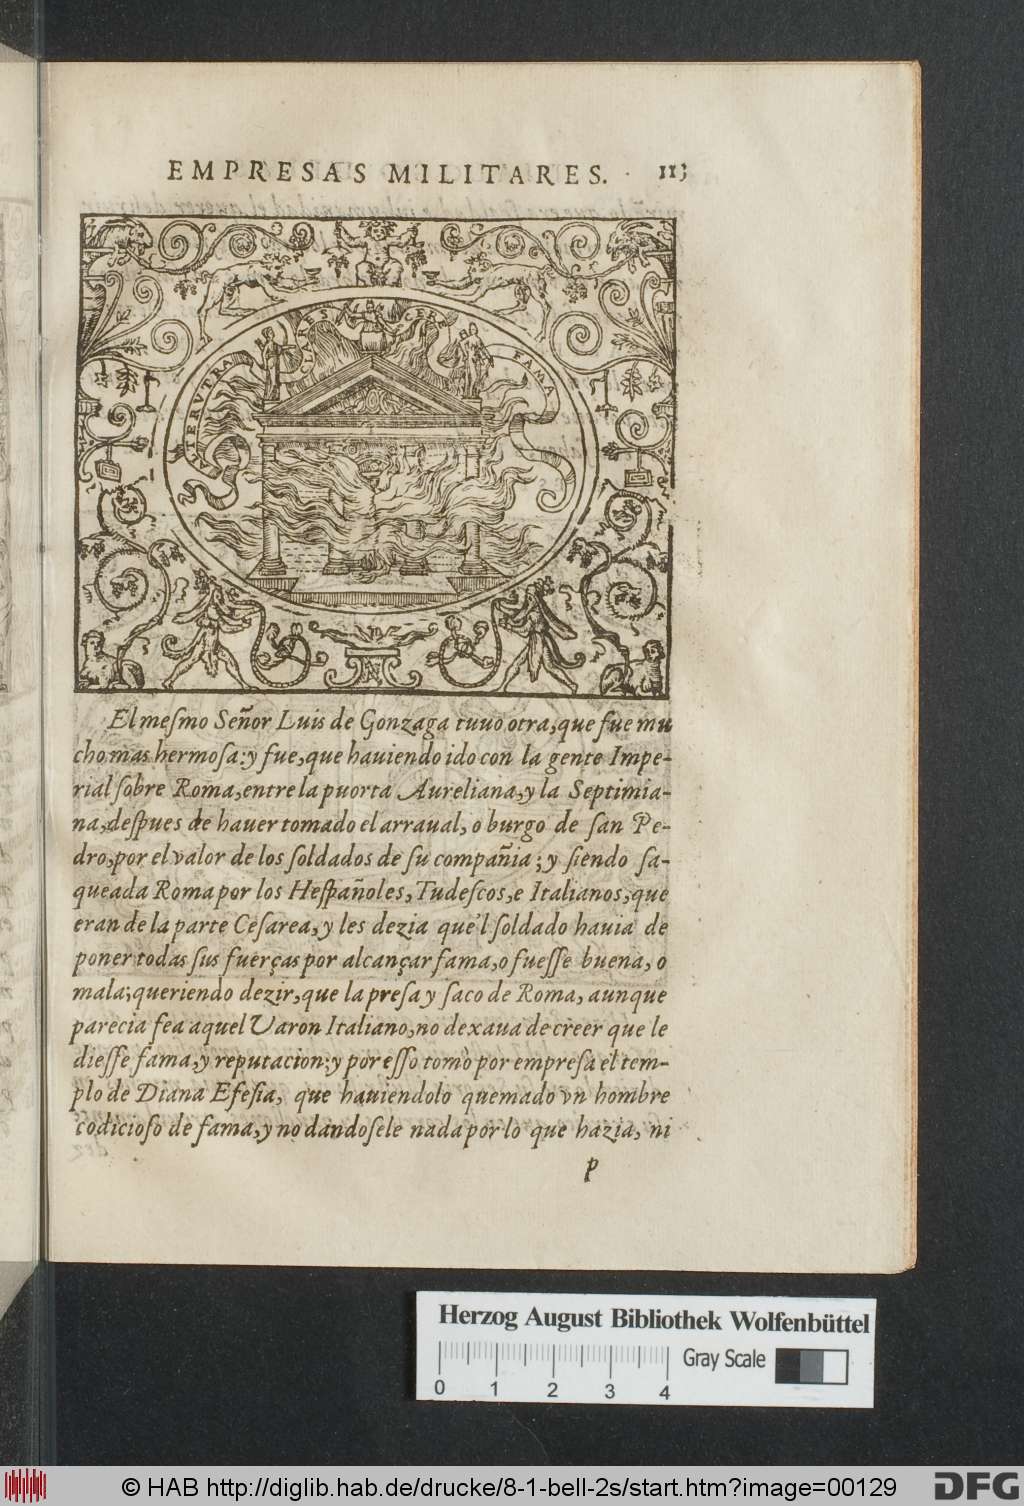 EMPRESAS MILITARES. 113
ALTERVTRA CLARESCERE FAMA
El meſmo Señor Luis de Gonzaga tuuo otra, que fue mu
cho mas hermoſa: y fue, que hauiendo ido con la gente Impe-
rial ſobre Roma, entre la puorta Aureliana, y la Septimia-
na, deſpues de hauer tomado el arraual, o burgo de ſan Pe-
dro, por el valor de los ſoldados de ſu compañia; y ſiendo ſa-
queada Roma por los Heſpañoles, Tudeſcos, e Italianos; que
eran de la parte Ceſarea, y les dezia que'l ſoldado hauia de
poner todas ſus fuerças por alcançar fama, o fueſſe buena, o
mala; queriendo dezir, que la preſa y ſaco de Roma, aunque
parecia fea aquel Varon Italiano, no dexaua de creer que le
dieſſe fama, y reputacion: y por eſſo tomò por empreſa el tem-
plo de Diana Efeſia, que hauiendolo quemado vn hombre
codicioſo de fama, y no dandoſele nada por lo que hazia, ni
P
Herzog August Bibliothek Wolfenbüttel
Gray Scale
0 1 2 3 4
© HAB http://diglib.hab.de/drucke/8-1-bell-2s/start.htm?image=00129
DFG